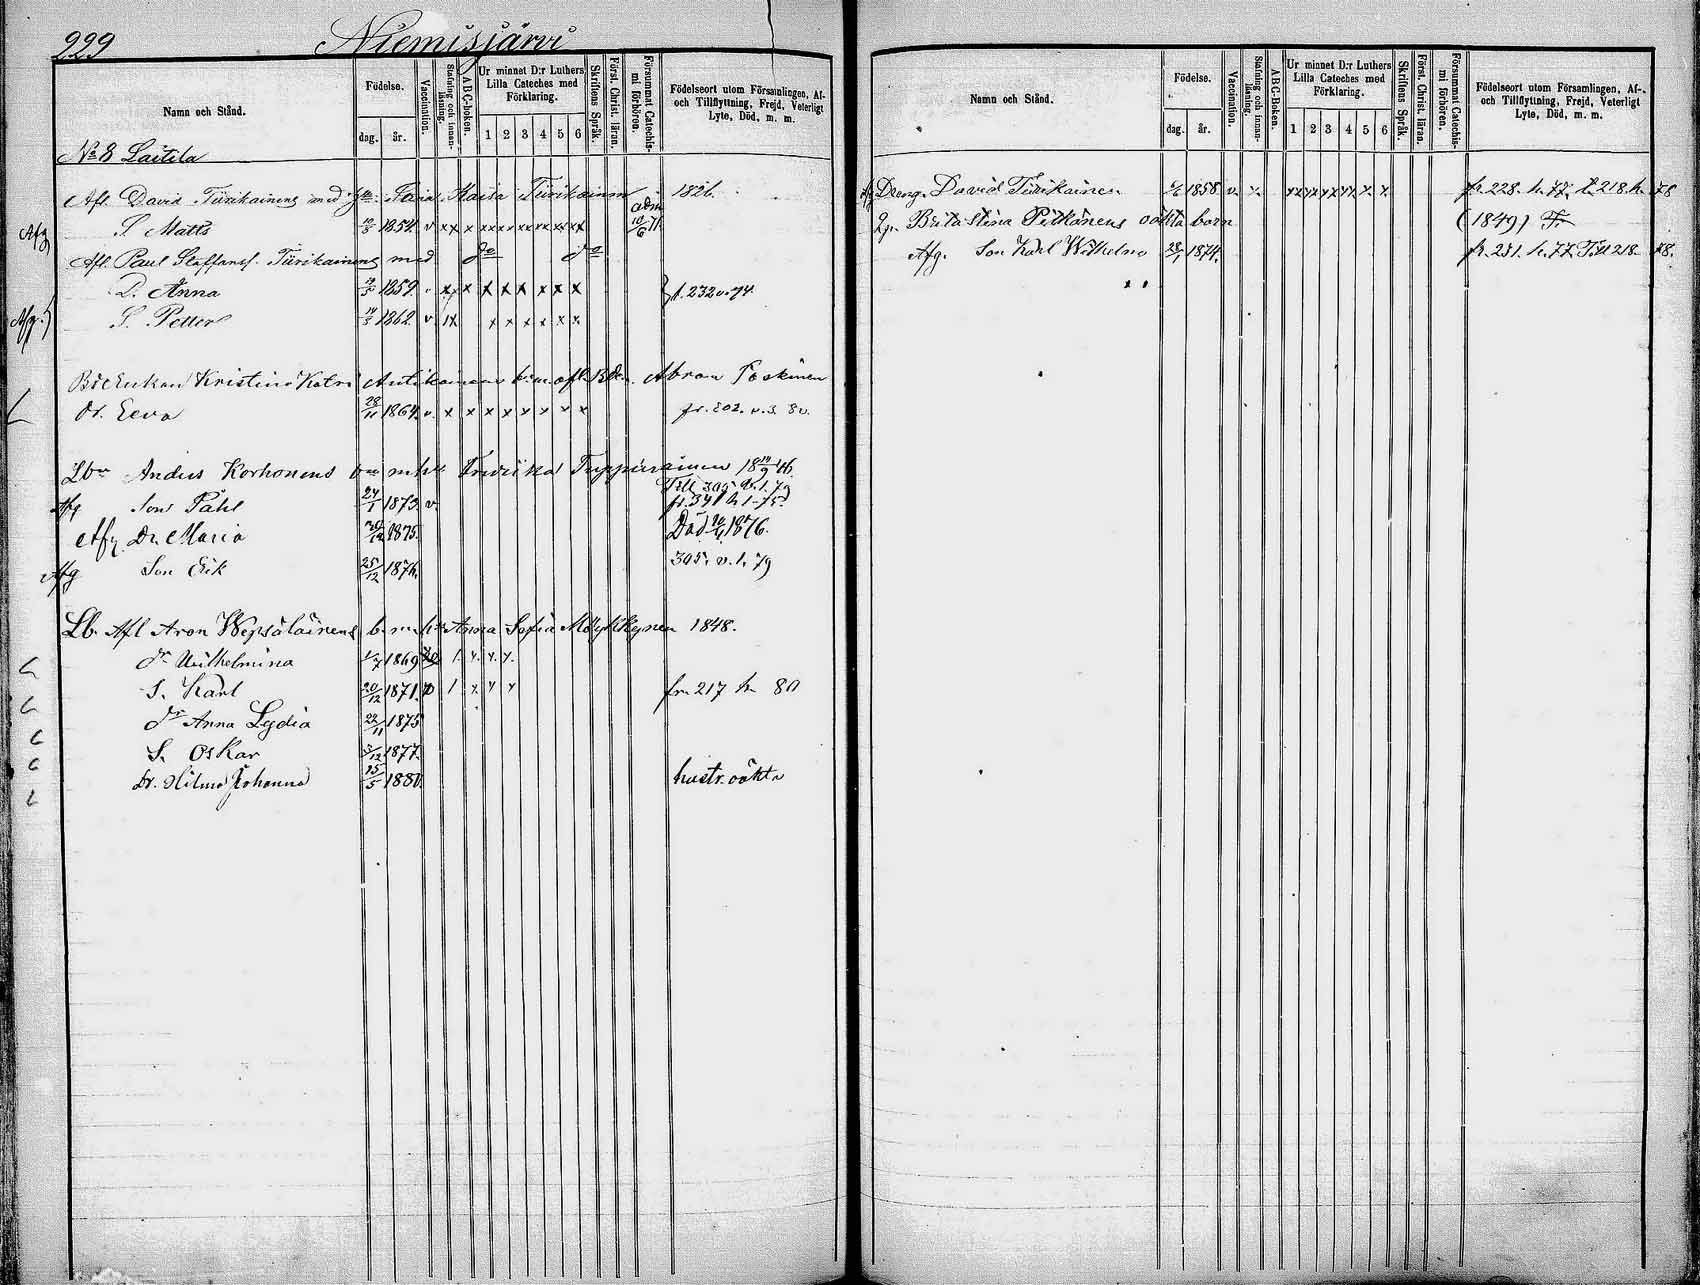 229 Niemisjärvi
Namn och Stånd. Födelse. dag. år. Vaccination. Stafning och innanläsning. A B C-boken. Ur minnet D:r Luthers Lilla Cateches med Förklaring. 1 2 3 4 5 6 Skriftens Språk. Först. Christ. läran. Försummat Catechismi förhören. Födelseort utom Församlingen, Af- och Tillflyttning, Frejd, Veterligt Lyte, Död, m. m.
No 8 Laitila
Afl. David Tiirikainens med Kaisa Tiirikainen 1826.
Afg S. Matts 1854 v xx x xx xx xx xx xx xx adm 10/6 71.
Afl. Paul Staffanss. Tiirikainens med do do
D. Anna 1859. x x x x x x x x f. 232 v. 74
Afg. S. Petter 1862. v. x x x x x x
Enkan Kristina Katri Antikainens b. m. afl. Abram Poskinen
dr. Eeva 28/11 1864. v. x x x x x x x x fr. 202. v. 3. 80.
Lbr Anders Korhonens b. m. h. Fredrika Tuppurainen 1846.
Till 305 v. 1. 79
Afg Son Påhl 24/1 1873. v. fr. 341 h 1-75
Afg. Dr. Maria 1875. Död 1876.
Afg Son Erik 25/12 1876. 305. v. 1. 79
Lb. Afl Aron Wepsäläinens b. m. h. Anna Sofia Möykkynen 1848.
dr Wilhelmina 1/7 1869
S. Karl 20/12 1871. fr. 217 h 80
dr Anna Lydia 22/11 1875
S. Oskar 1877.
Dr. Hilma Johanna 15/5 1880. hustr. oäkta
Namn och Stånd. Födelse. dag. år. Vaccination. Stafning och innanläsning. A B C-Boken. Ur minnet D:r Luthers Lilla Cateches med Förklaring. 1 2 3 4 5 6 Skriftens Språk. Först. Christ. läran. Försummat Catechismi förhören. Födelseort utom Församlingen, Af- och Tillflyttning, Frejd, Veterligt Lyte, Död, m. m.
Afg Dreng. David Tiirikainen 1858 v. x. fr. 228. h. 77. t. 218. h. 78
Qp. Brita Stina Pitkänens oäkta barn (1849) F.
Afg. Son Karl Wilhelm 28/1 1874. fr. 251. h. 77. Till 218. 78.